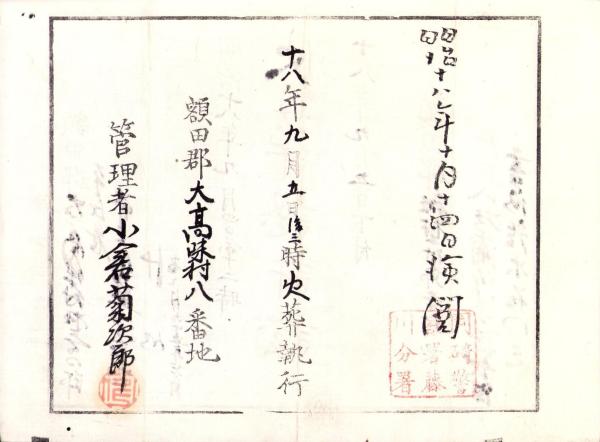 昭和十八年十月十四日検閲
岡崎警
察署藤
川分署
十八年九月五日後三時火葬執行
額田郡大高味村八番地
管理者小倉菊次郎